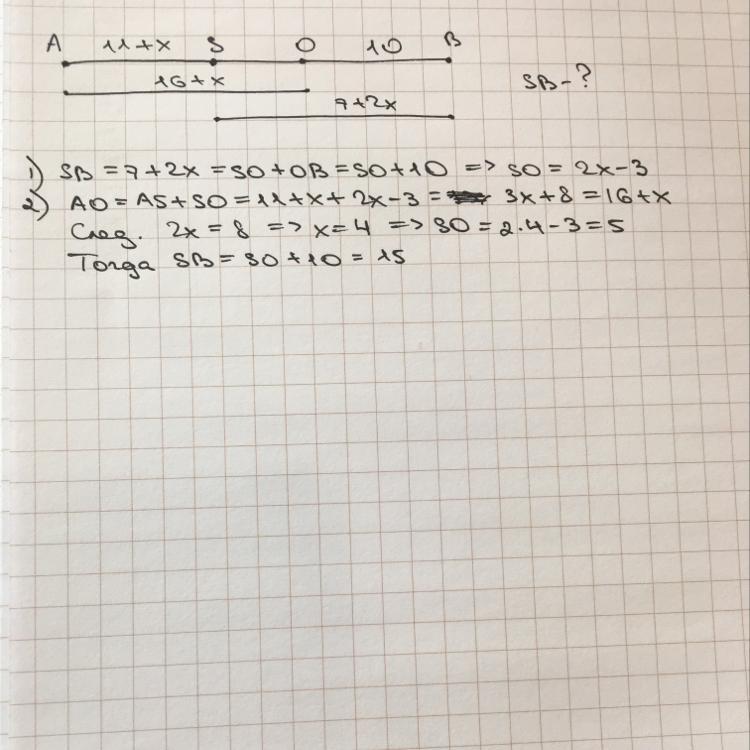 A 11+x S O 10 B
16+x SB-?
7+2x
1) SB = 7+2x = SO+OB = SO+10 => SO = 2x-3
2) AO = AS+SO = 11+x+2x-3 = 3x+8 = 16+x
След. 2x = 8 => x = 4 => SO = 2·4-3 = 5
Тогда SB = SO+10 = 15